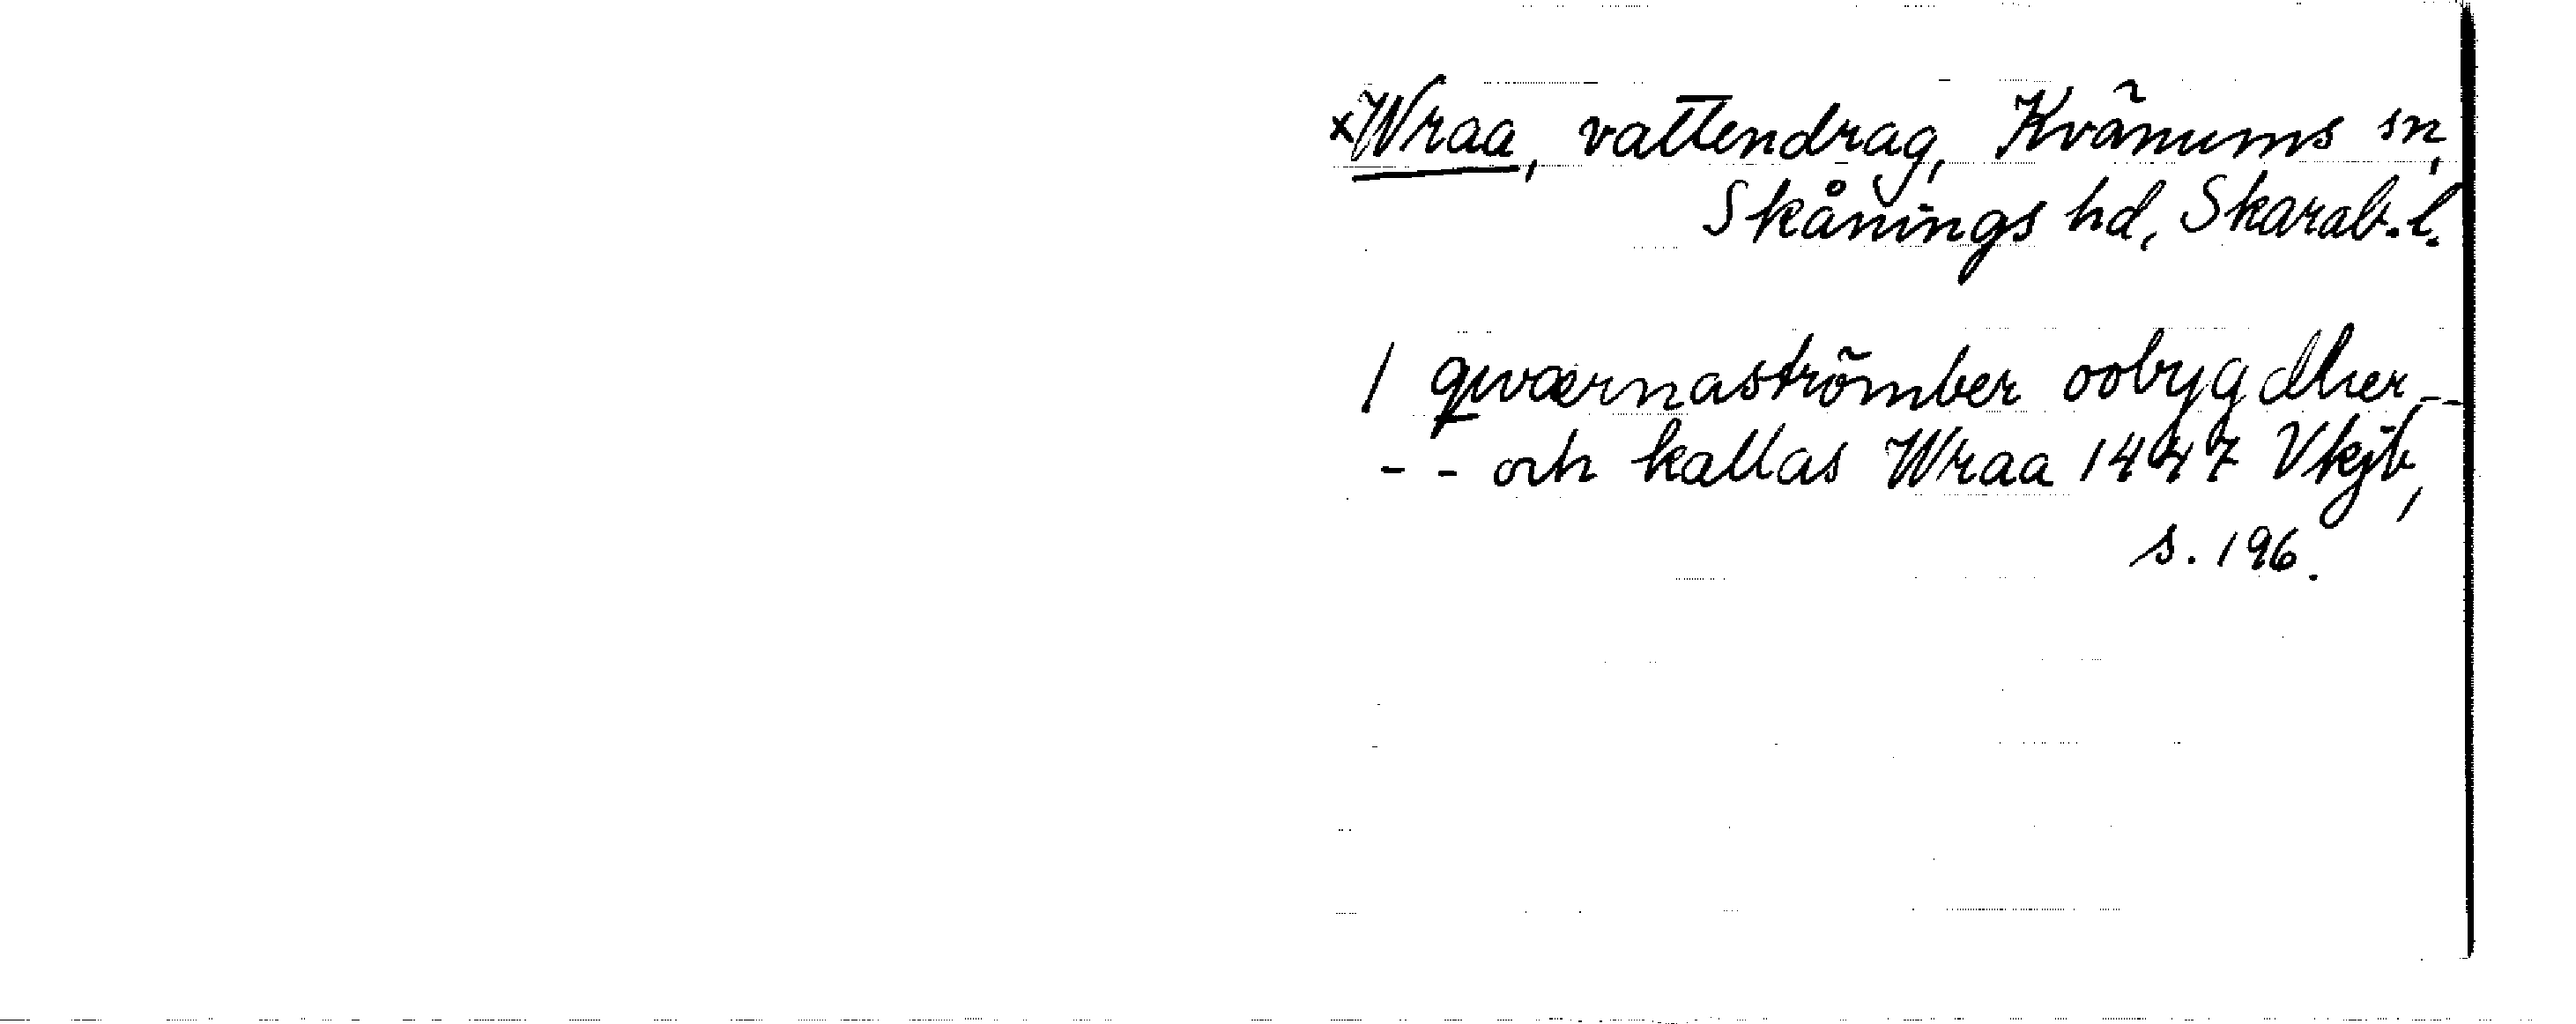 xWraa, vattendrag, Kvänums sn,
Skånings hd, Skarab. l.
1 qwærnaströmber oobygdher --
-- och kallas Wraa 1447 Vkjb,
s. 196.